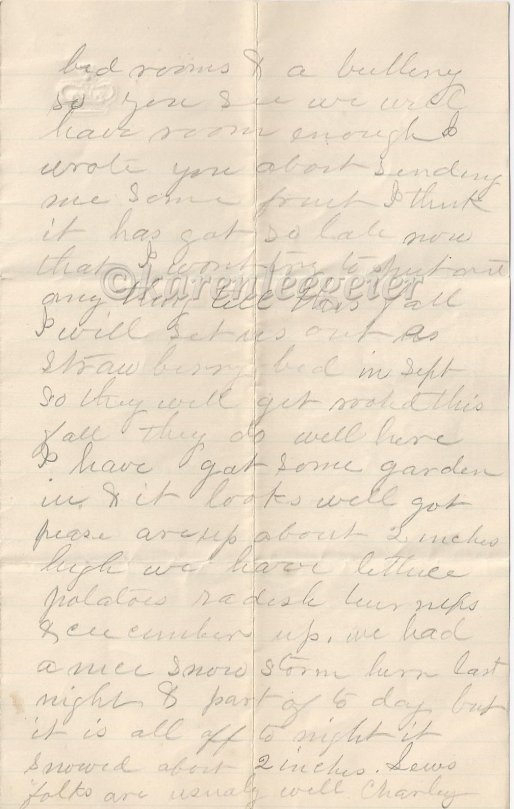 bed rooms & a buttery
so you see we will
have room enough I
wrote you about sending
me some fruit I think
it has got so late now
that I wont try to put out
any thing till this fall
I will set us out a
straw berry bed in Sept
so they will get rooted this
fall they do well here
I have got some garden
in & it looks well got
pease are up about 2 inches
high we have lettuce
potatoes radish turnips
& cucumbers up. we had
a nice snow storm here last
night & part of to day but
it is all off to night it
snowed about 2 inches. Lews
folks are usualy well Charley
©karenleepeier